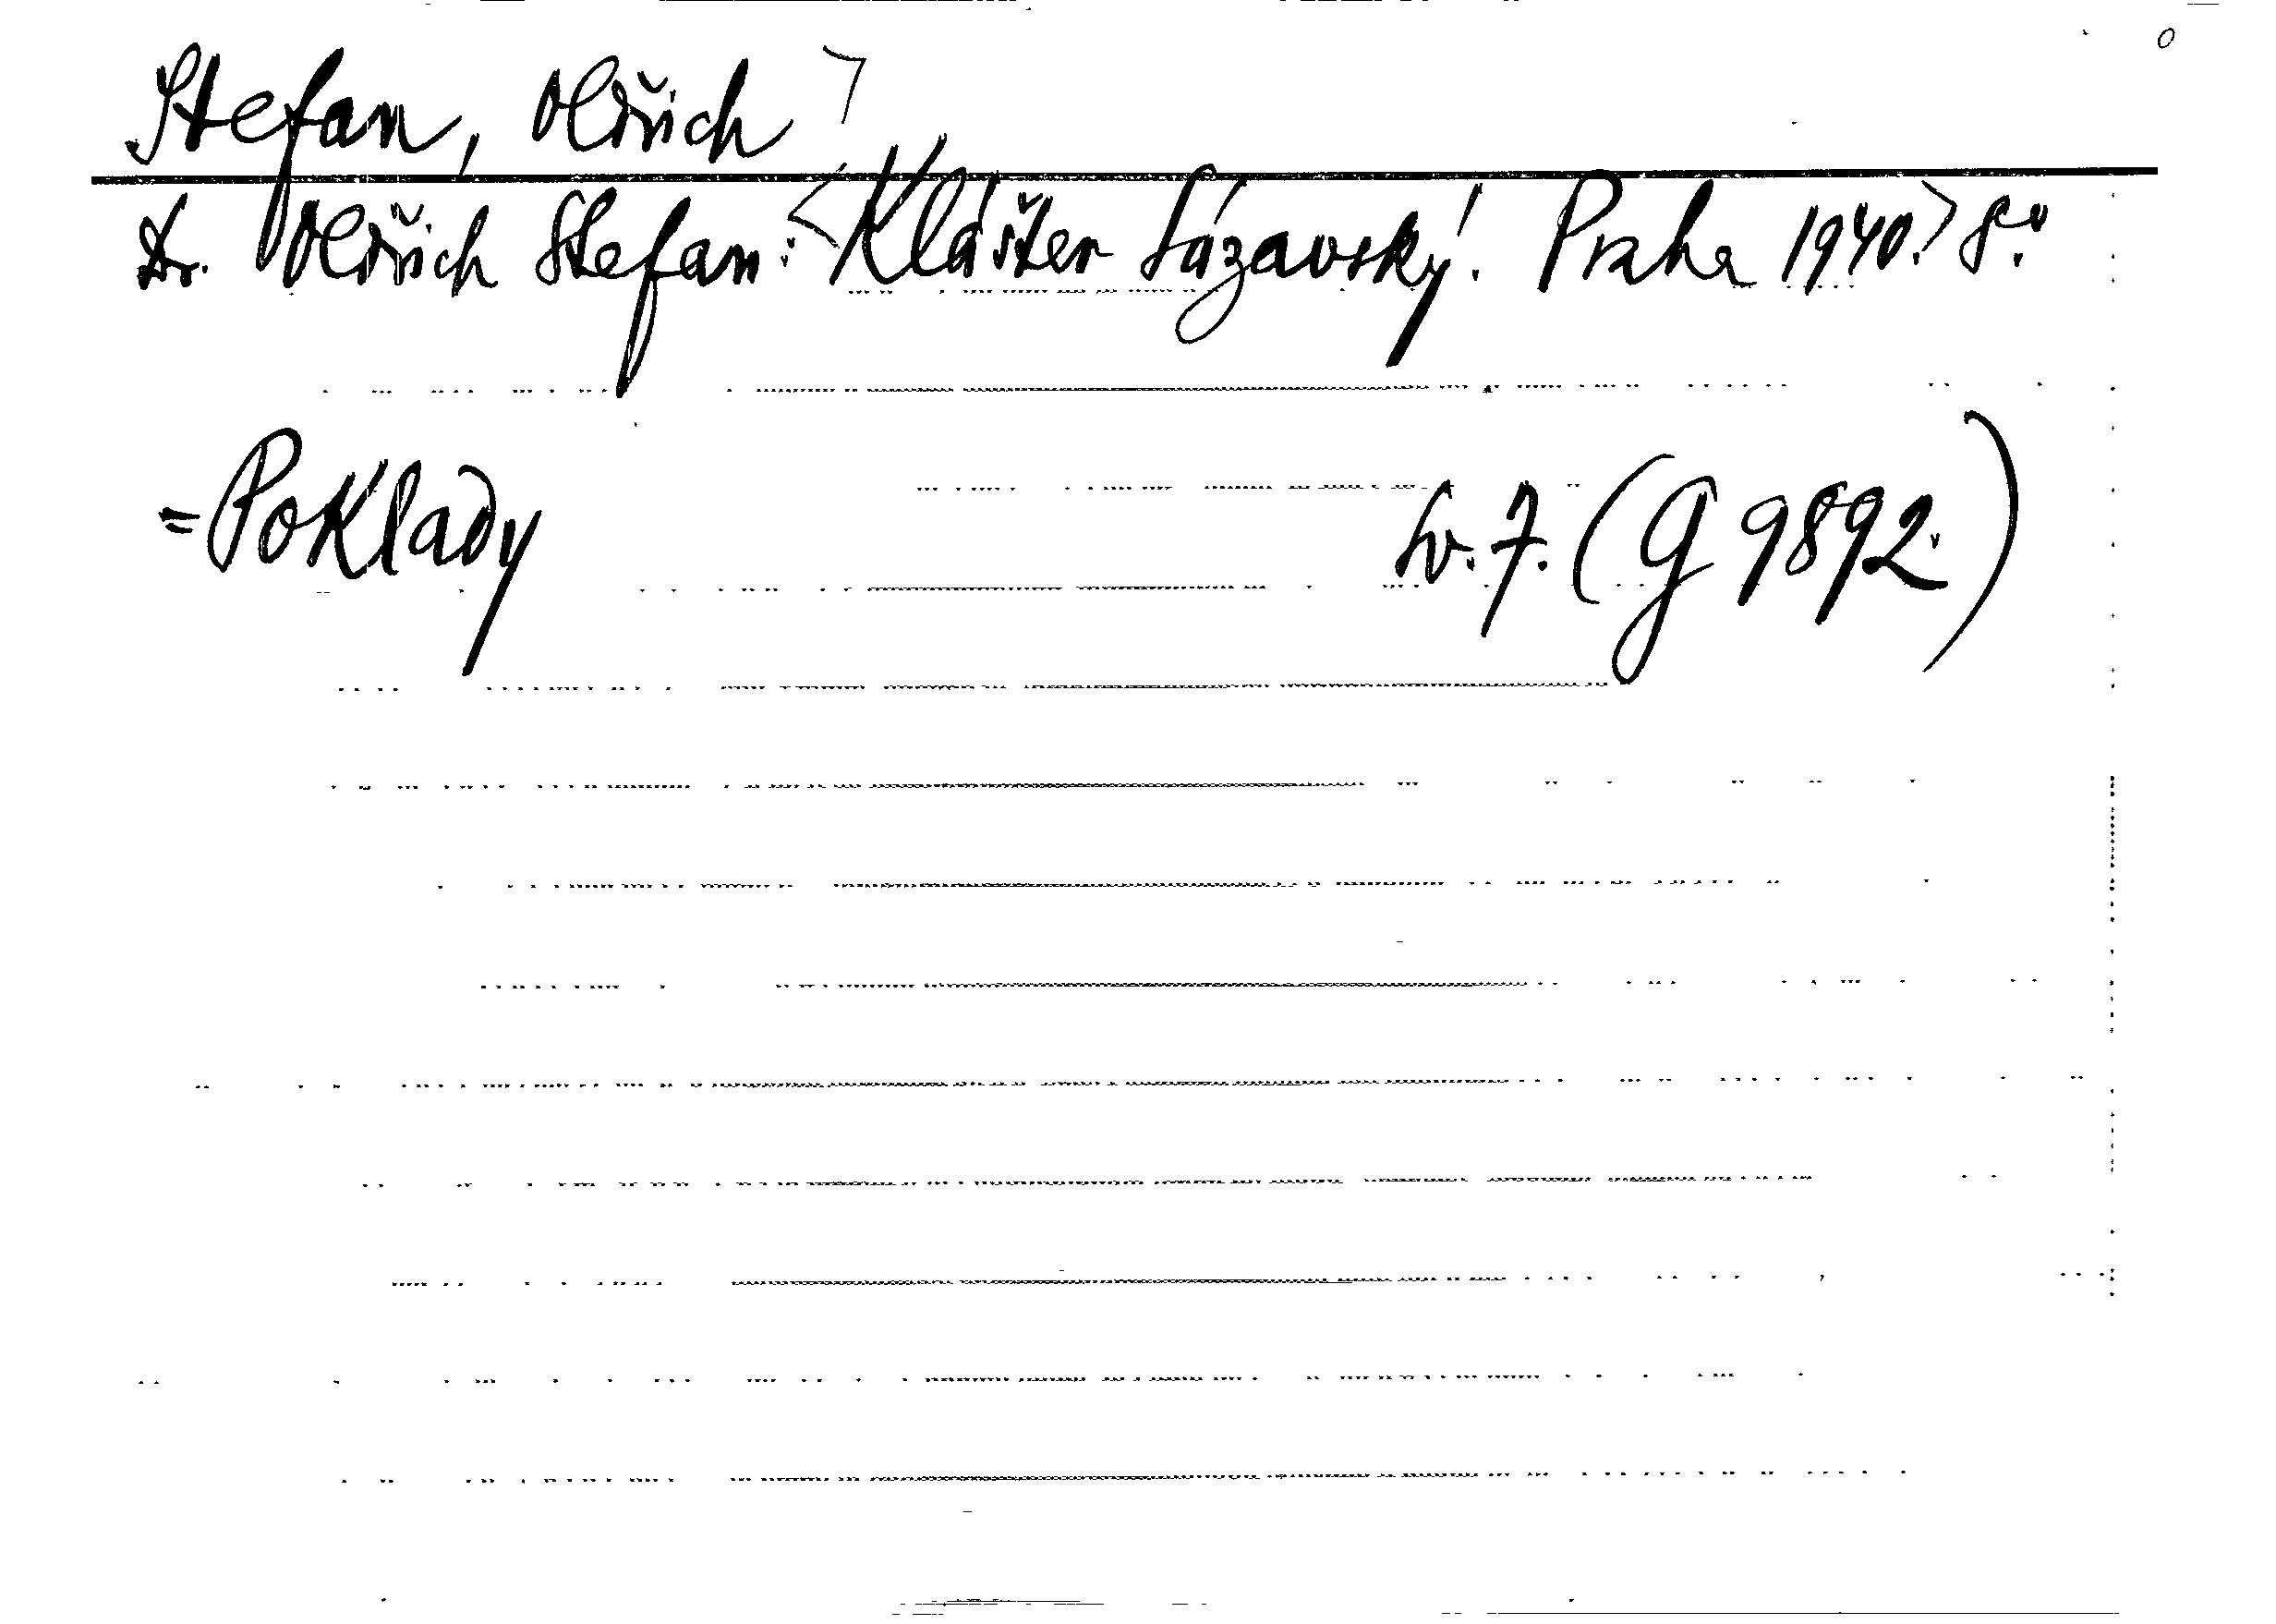 Stefan, Oldřich >
Dr. Oldřich Stefan: <Klášter Sázavský. Praha 1940.> 8°.
=Poklady Sv. 7. (G 9892.)